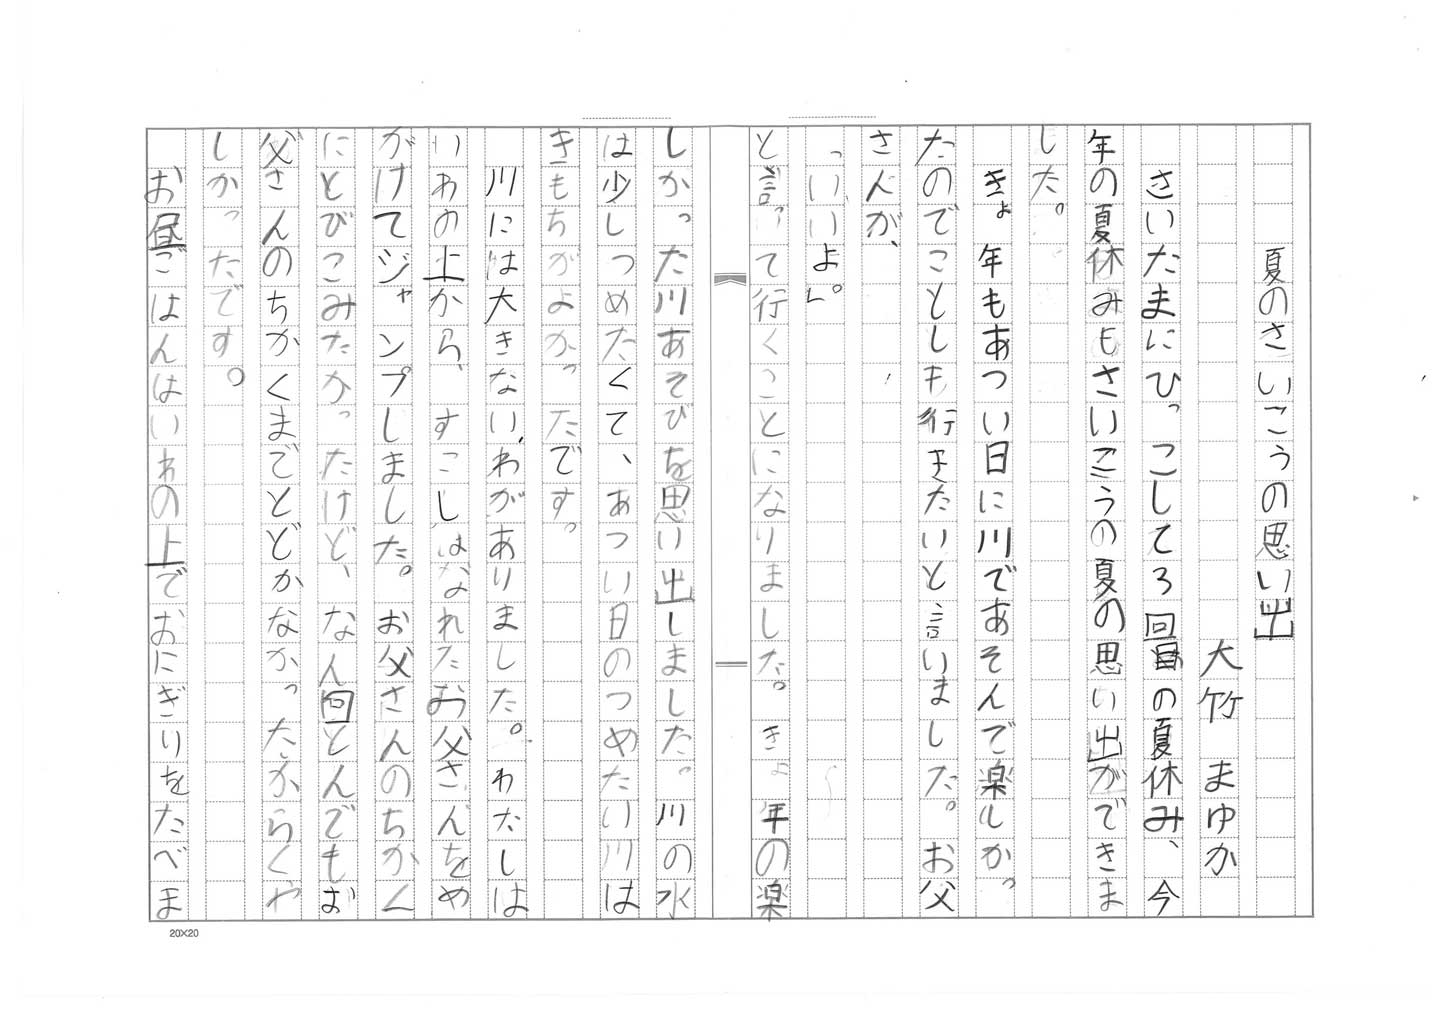 夏のさいこうの思い出
大竹　まゆか
さいたまにひっこして3回目の夏休み、今
年の夏休みもさいこうの夏の思い出ができま
した。
きょ年もあつい日に川であそんで楽しかっ
たのでことしも行きたいと言いました。お父
さんが、
「いいよ。」
と言って行くことになりました。きょ年の楽
しかった川あそびを思い出しました。川の水
は少しつめたくて、あつい日のつめたい川は
きもちがよかったです。
川には大きないわがありました。わたしは
いわの上から、すこしはなれたお父さんをめ
がけてジャンプしました。お父さんのちかく
にとびこみたかったけど、なん回とんでもお
父さんのちかくまでとどかなかったからくや
しかったです。
お昼ごはんはいわの上でおにぎりをたべま
20×20